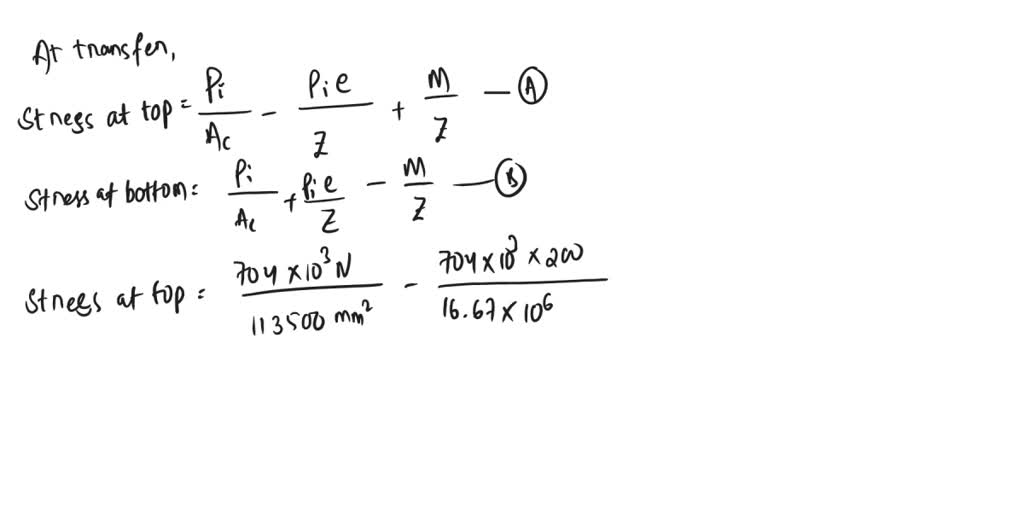 At transfer,
Stress at top = Pi/Ac - Pie/Z + M/Z — (A)
Stress at bottom = Pi/Ac + Pie/Z - M/Z — (B)
Stress at top = 704 × 10³ N/113500 mm² - 704 × 10³ × 200/16.67 × 10⁶